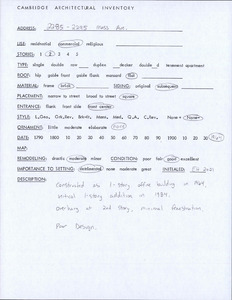 CAMBRIDGE ARCHITECTURAL INVENTORY
ADDRESS: 2285 - 2295 Mass Ave.
USE: residential commercial religious
STORIES: 1 2 3 4 5
TYPE: single double row duplex decker decide d tenement apartment
ROOF: hip gable front gable flank mansard flat
MATERIAL: frame brick SIDING: original subsequent
PLACEMENT: narrow to street broad to street square
ENTRANCE: flank front side front center
ORNAMENT: little moderate elaborate
DATE: 1790 1800 10 20 30 40 50 60 70 80 90 1900 10 20 30
MAP:
REMODELING: drastic moderate minor CONDITION: poor fair good excellent
IMPORTANCE TO SETTING: moderate great INITIALED:
DESCRIPTION:
Constructed as 1-story office building in 1964,
vertical history addition in 1984.
overhang at 2nd story, minimal fenestration.
Poor Design.